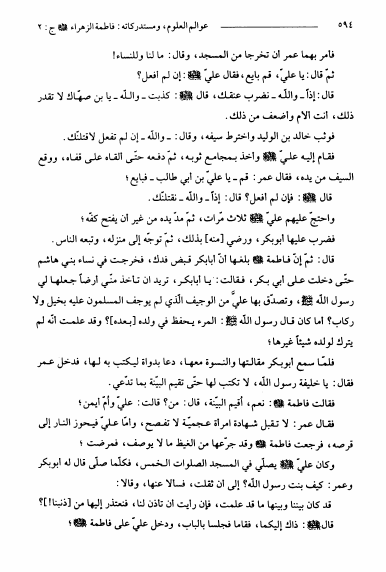 ٥٩٤ عوالم العلوم، ومستدركاته: فاطمة الزهراء ﷺ ج: ٢
فأمر بهما عمر أن تخرجا من المسجد، وقال: ما لنا وللنساء!
ثمّ قال: يا عليّ، قم بايع، فقال عليّ ﷺ: إن لم أفعل؟
قال: إذاً ـ والله ـ نضرب عنقك، قال ﷺ: كذبت ـ والله ـ يا بن صهّاك لا تقدر
ذلك، أنت ألأم وأضعف من ذلك.
فوثب خالد بن الوليد واخترط سيفه، وقال: ـ والله ـ إن لم تفعل لأقتلنّك.
فقام إليه عليّ ﷺ وأخذ بمجامع ثوبه، ثمّ دفعه حتّى ألقاه على قفاه، ووقع
السيف من يده، فقال عمر: قم ـ يا عليّ بن أبي طالب ـ فبايع؛
قال ﷺ: فإن لم أفعل؟ قال: إذاً ـ والله ـ نقتلنّك.
واحتجّ عليهم عليّ ﷺ ثلاث مرّات، ثمّ مدّ يده من غير أن يفتح كفّه؛
فضرب عليها أبوبكر، ورضي [منه] بذلك، ثمّ توجّه إلى منزله، وتبعه الناس.
قال: ثمّ إنّ فاطمة ﷺ بلغها أنّ أبابكر قبض فدك، فخرجت في نساء بني هاشم
حتّى دخلت على أبي بكر، فقالت: يا أبابكر، تريد أن تأخذ منّي أرضاً جعلها لي
رسول الله ﷺ، وتصدّق بها عليّ من الوجيف الّذي لم يوجف المسلمون عليه بخيل ولا
ركاب؟ أما كان قال رسول الله ﷺ: المرء يحفظ في ولده [بعده]؟ وقد علمت أنّه لم
يترك لولده شيئاً غيرها؛
فلمّا سمع أبوبكر مقالتها والنسوة معها، دعا بدواة ليكتب به لها، فدخل عمر
فقال: يا خليفة رسول الله، لا تكتب لها حتّى تقيم البيّنة بما تدّعي.
فقالت فاطمة ﷺ: نعم، أقيم البيّنة، قال: من؟ قالت: عليّ وأمّ أيمن؛
فقال عمر: لا تقبل شهادة امرأة عجميّة لا تفصح، وأمّا عليّ فيحوز النار إلى
قرصه، فرجعت فاطمة ﷺ وقد جرّعها من الغيظ ما لا يوصف، فمرضت؛
وكان عليّ ﷺ يصلّي في المسجد الصلوات الخمس، فكلّما صلّى قال له أبوبكر
وعمر: كيف بنت رسول الله؟ إلى أن ثقلت، فسألا عنها، وقالا:
قد كان بيننا وبينها ما قد علمت، فإن رأيت أن تأذن لنا، فنعتذر إليها من [ذنبنا]؟
قال ﷺ: ذاك إليكما، فقاما فجلسا بالباب، ودخل عليّ على فاطمة ﷺ؛